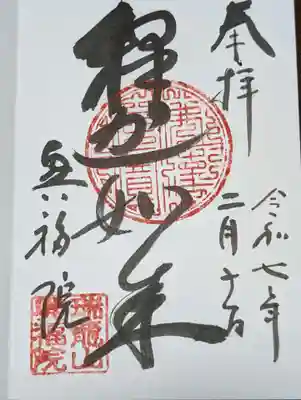 奉拝
令和七年
二月十一日
釋迦如来
興福院
瑞龍山
興福院